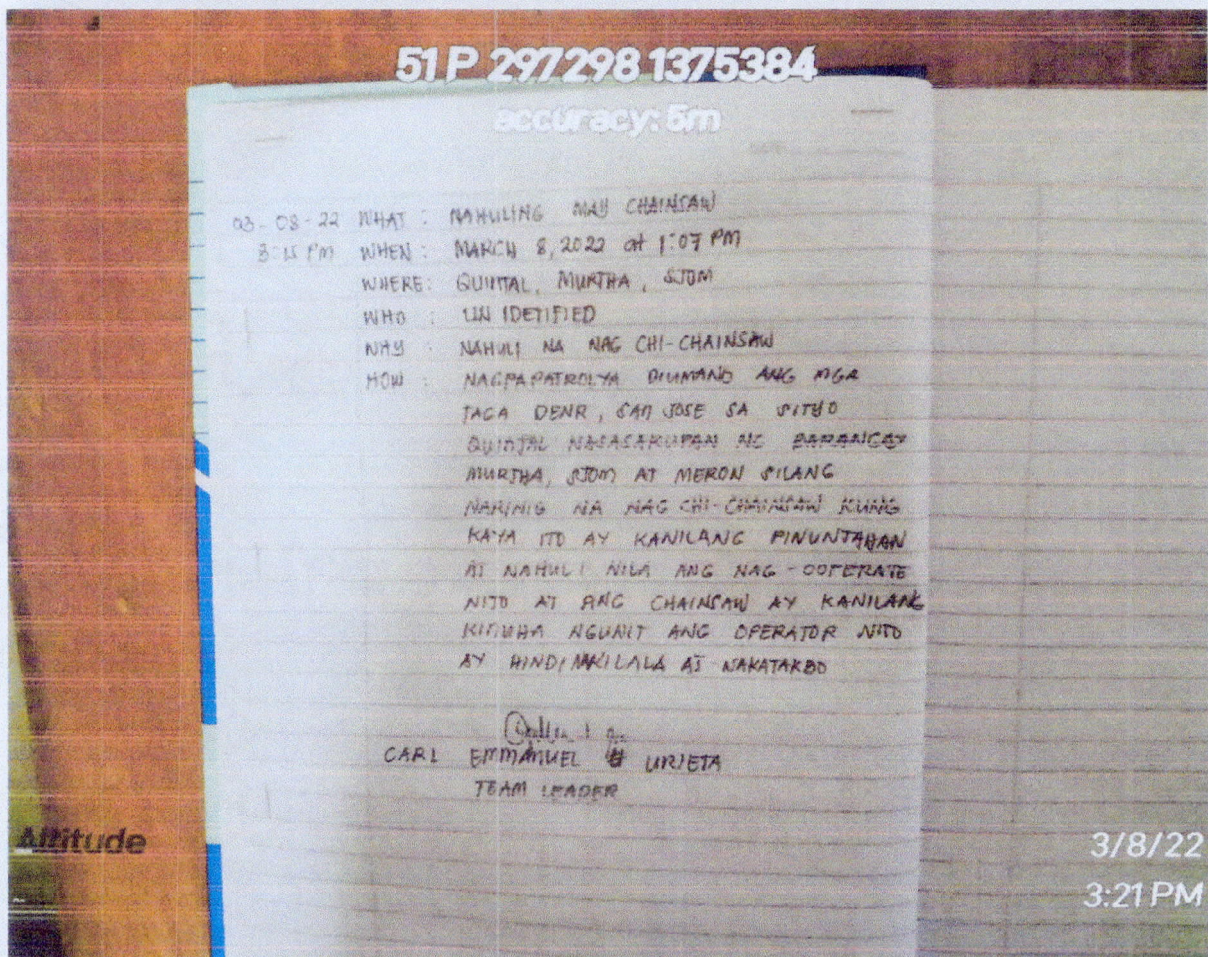 51 P 297298 1375384
accuracy: 5m
03-08-22 WHAT : NAHULING MAY CHAINSAW
3:15 PM WHEN : MARCH 8, 2022 at 1:07 PM
WHERE : QUINTAL, MURTHA, SJOM
WHO : UN IDETIFIED
WHY : NAHULI NA NAG CHI-CHAINSAW
HOW : NAGPAPATROLYA DIUMANO ANG MGA
TAGA DENR, SAN JOSE SA SITYO
QUINTAL NASASAKUPAN NG BARANGAY
MURTHA, SJOM AT MERON SILANG
NARINIG NA NAG CHI-CHAINSAW KUNG
KAYA ITO AY KANILANG PINUNTAHAN
AT NAHULI NILA ANG NAG-OOPERATE
NITO AT ANG CHAINSAW AY KANILANG
KINUHA NGUNIT ANG OPERATOR NITO
AY HINDI MAKILALA AT NAKATAKBO
CARL EMMANUEL URIETA
TEAM LEADER
Altitude
3/8/22
3:21 PM